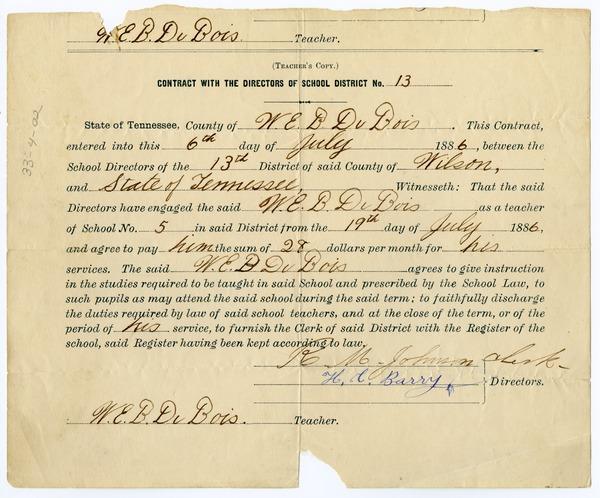 W.E.B. Du Bois. Teacher.
(TEACHER'S COPY.)
CONTRACT WITH THE DIRECTORS OF SCHOOL DISTRICT No. 13
State of Tennessee, County of W. E. B. Du Bois. This Contract,
entered into this 6th day of July 1886, between the
School Directors of the 13th District of said County of Wilson,
and State of Tennessee, Witnesseth: That the said
Directors have engaged the said W. E. B. Du Bois as a teacher
of School No. 5 in said District from the 19th day of July 1886,
and agree to pay him the sum of 28 dollars per month for his
services. The said W. E. B Du Bois agrees to give instruction
in the studies required to be taught in said School and prescribed by the School Law, to
such pupils as may attend the said school during the said term; to faithfully discharge
the duties required by law of said school teachers, and at the close of the term, or of the
period of his service, to furnish the Clerk of said District with the Register of the
school, said Register having been kept according to law.
R M Johnson clerk
H. C. Barry, Directors.
W. E. B. Du Bois. Teacher.
33-4-02